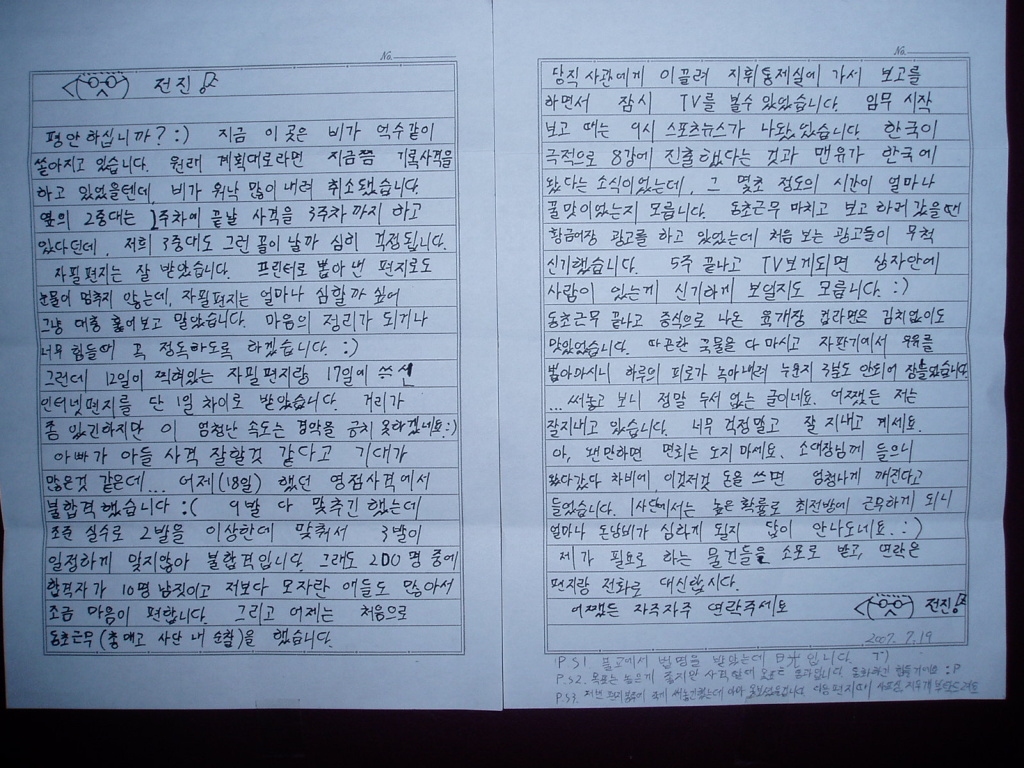 No.
전진
평안하십니까? :) 지금 이 곳은 비가 억수같이
쏟아지고 있습니다. 원래 계획대로라면 지금쯤 기록사격을
하고 있었을텐데, 비가 워낙 많이 내려 취소됐습니다.
옆의 2중대는 1주차에 끝날 사격을 3주차까지 하고
있다던데, 저희 3중대도 그런 꼴이 날까 심히 걱정됩니다.
자필편지는 잘 받았습니다. 프린터로 뽑아 낸 편지로도
눈물이 멈추지 않는데, 자필편지는 얼마나 심할까 싶어
그냥 대충 훑어보고 말았습니다. 마음의 정리가 되거나
너무 힘들때 꼭 정독하도록 하겠습니다. :)
그런데 12일이 찍혀있는 자필편지랑 17일에 쓰신
인터넷편지를 단 1일 차이로 받았습니다. 거리가
좀 있긴하지만 이 엄청난 속도는 경악을 금치 못하겠네요:)
아빠가 아들 사격 잘할것 같다고 기대가
많은것 같은데... 어제(18일) 했던 영점사격에서
불합격했습니다 :( 9발 다 맞추긴 했는데
조준 실수로 2발을 이상한데 맞춰서 3발이
일정하게 맞지않아 불합격입니다. 그래도 200명 중에
합격자가 10명 남짓이고 저보다 모자란 애들도 많아서
조금 마음이 편합니다. 그리고 어제는 처음으로
동초근무(총메고 사단 내 순찰)을 했습니다.
No.
당직사관에게 이끌려 지휘통제실에 가서 보고를
하면서 잠시 TV를 볼수 있었습니다. 임무 시작
보고 때는 9시 스포츠뉴스가 나왔었습니다. 한국이
극적으로 8강에 진출했다는 것과 맨유가 한국에
왔다는 소식이었는데, 그 몇초 정도의 시간이 얼마나
꿀맛이었는지 모릅니다. 동초근무 마치고 보고하러 갔을땐
황금어장 광고를 하고 있었는데 처음 보는 광고들이 무척
신기했습니다. 5주 끝나고 TV보게되면 상자안에
사람이 있는게 신기하게 보일지도 모릅니다. :)
동초근무 끝나고 증식으로 나온 육개장 컵라면은 김치없이도
맛있었습니다. 따끈한 국물을 다 마시고 자판기에서 우유를
뽑아마시니 하루의 피로가 녹아내려 누운지 3분도 안되어 잠들었습니다
... 써놓고 보니 정말 두서 없는 글이네요. 어쨌든 저는
잘지내고 있습니다. 너무 걱정말고 잘 지내고 계세요.
아, 웬만하면 면회는 오지 마세요. 소대장님께 들으니
왔다갔다 차비에, 이것저것 돈을 쓰면 엄청나게 깨진다고
들었습니다. 1사단에서는 높은 확률로 최전방에 근무하게 되니
얼마나 돈낭비가 심하게 될지 답이 안나오네요. :)
제가 필요로 하는 물건들을 소포로 받고, 연락은
편지랑 전화로 대신합시다.
어쨌든 자주자주 연락주세요 전진
2007. 7. 19
P.S1. 불교에서 법명을 받았는데 日光입니다.
P.S2.
P.S3.